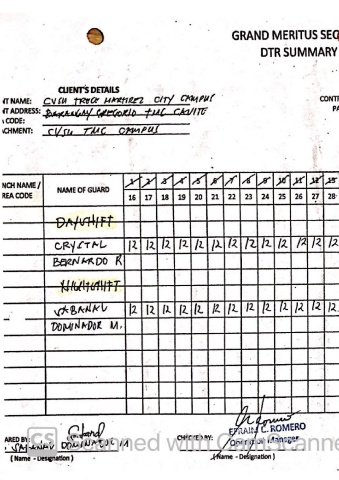 GRAND MERITUS SEC
DTR SUMMARY
CLIENT'S DETAILS
NT NAME: CVSU TRECE MARTIREZ CITY CAMPUS
NT ADDRESS: BARANGAY GREGORIO TMC CAVITE
CODE:
CHMENT: CVSU TMC CAMPUS
CONT
PA
NCH NAME / REA CODE
NAME OF GUARD
1 2 3 4 5 6 7 8 9 10 11 12 13
16 17 18 19 20 21 22 23 24 25 26 27 28
DAYSHIFT
CRYSTAL 12 12 12 12 12 12 12 12 12 12 12 12 12
BERNARDO R
NIGHTSHIFT
SABANAL 12 12 12 12 12 12 12 12 12 12 12 12 12
DOMINADOR M.
ARED BY: DOMINADOR M
( Name - Designation )
CHECKED BY: EFRAIM C. ROMERO
Operation Manager
(Name - Designation )
CS Scanned with CamScanne